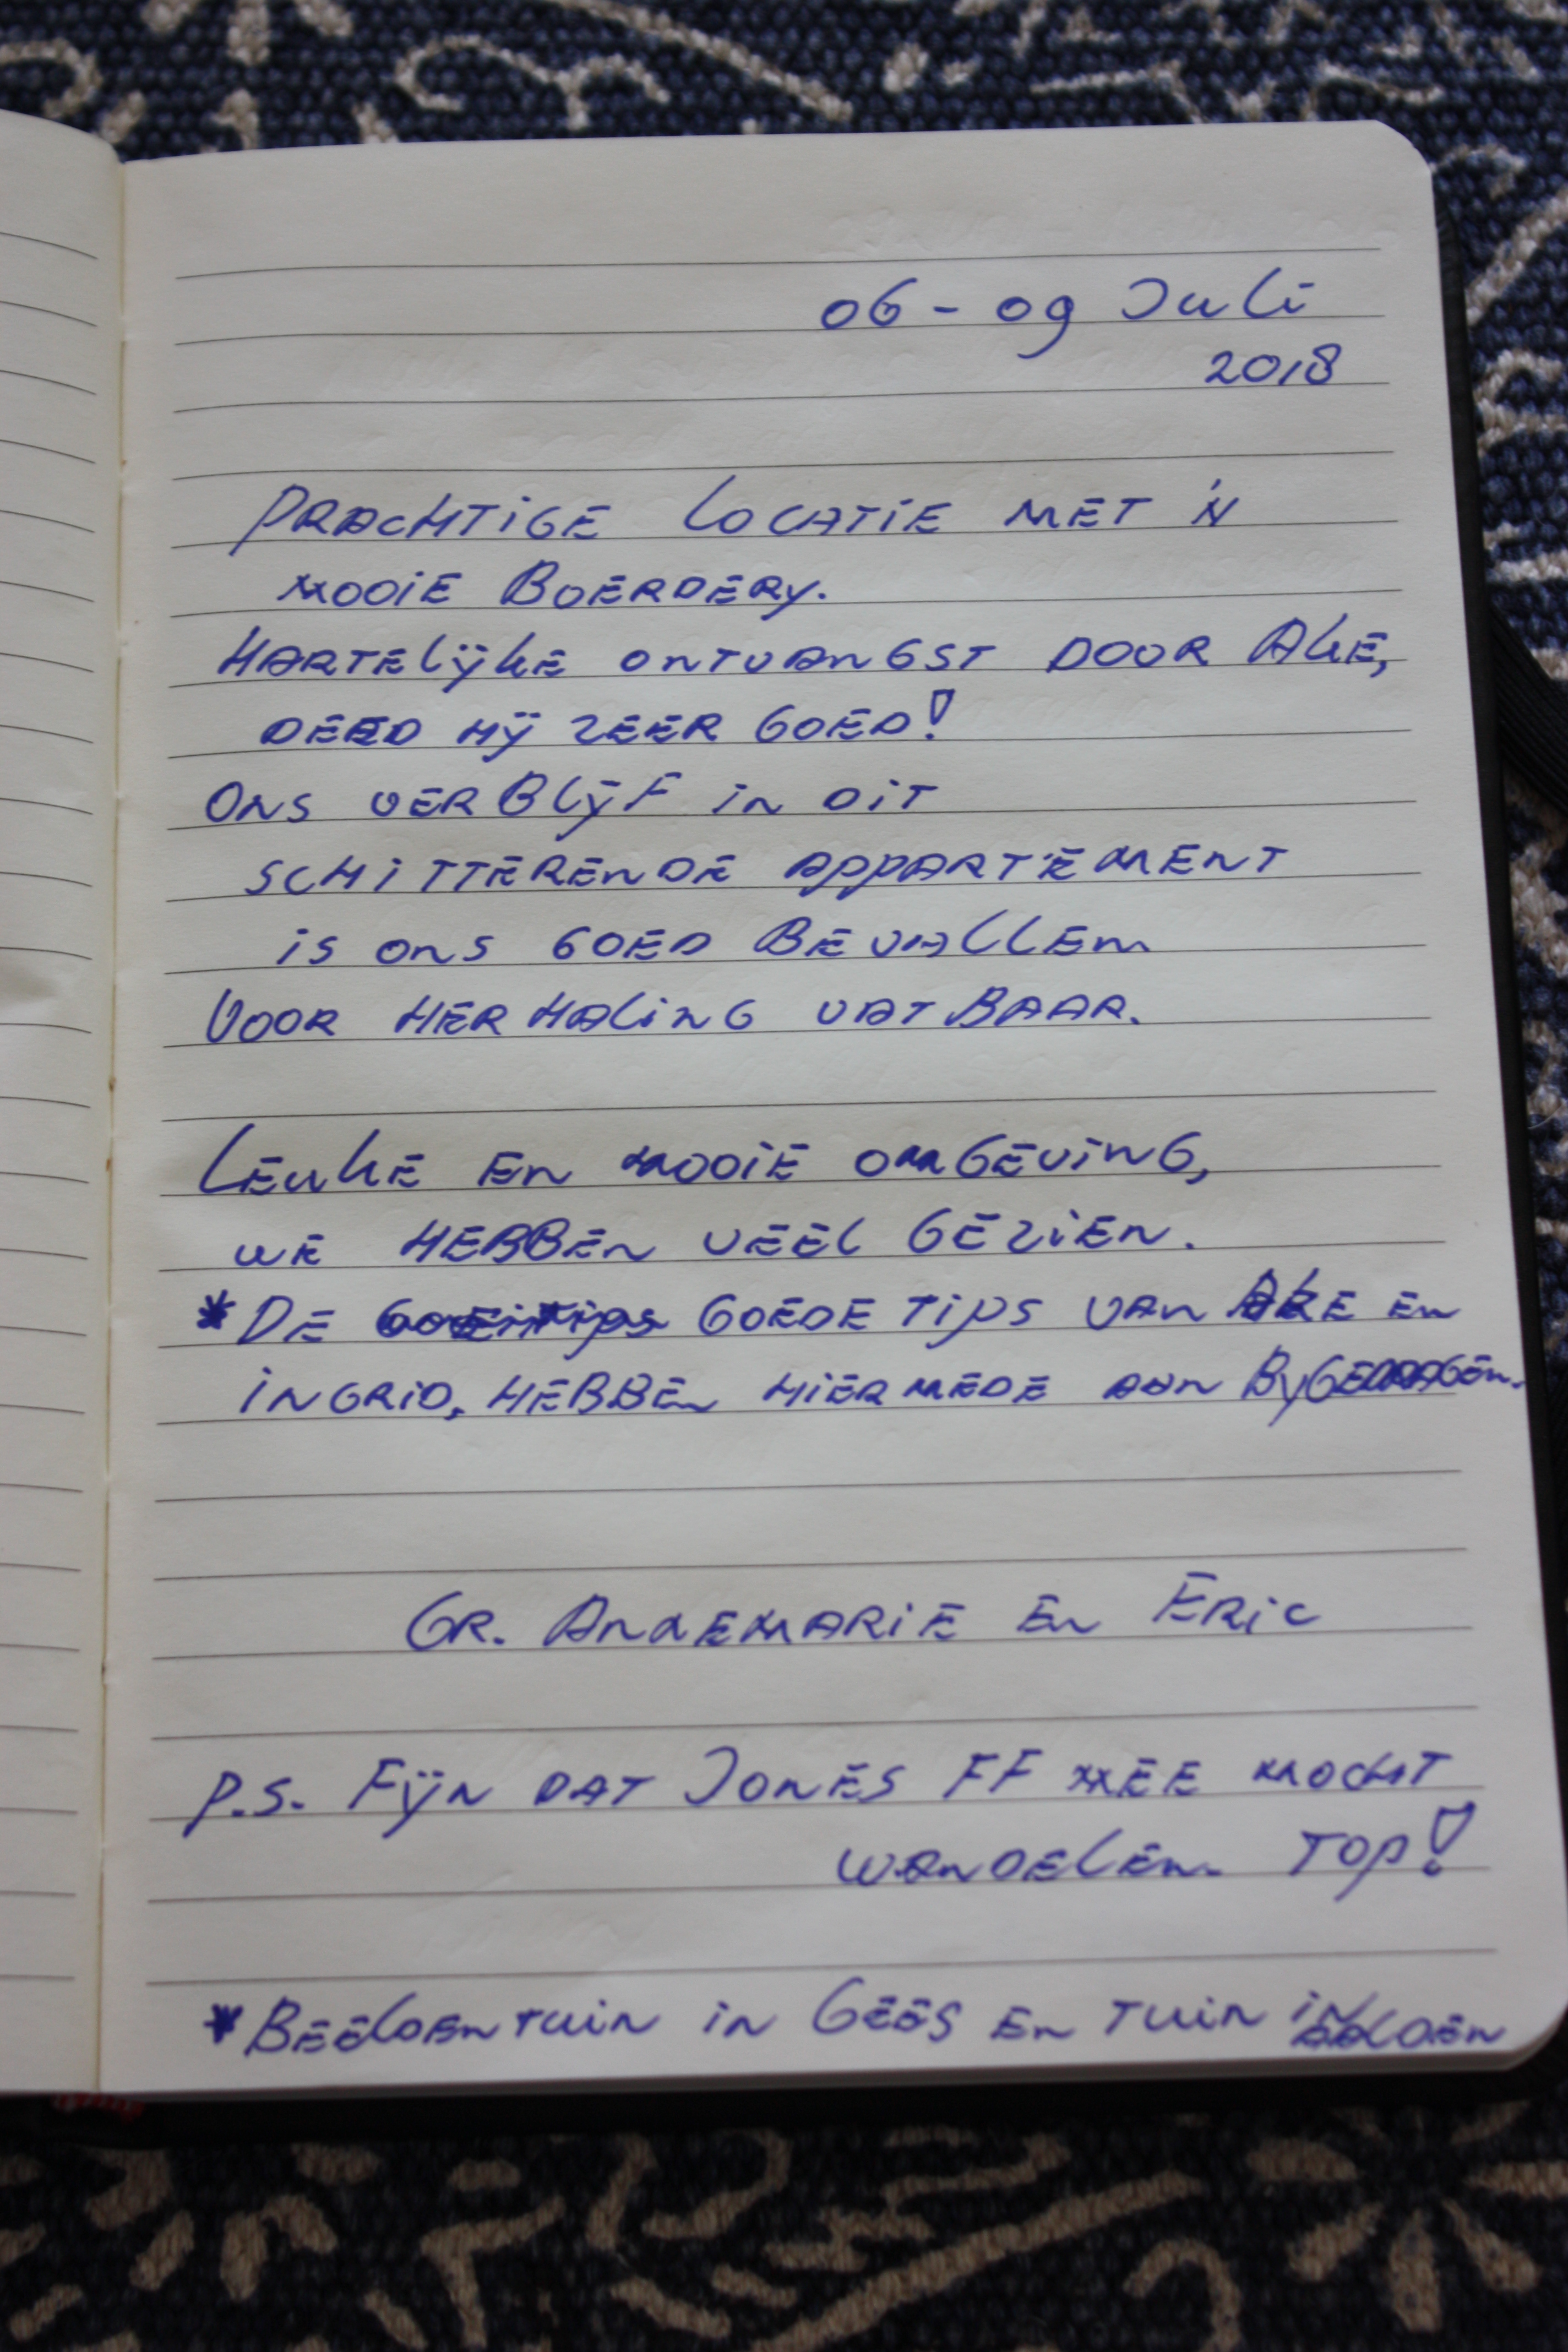 06 - 09 Juli
2018
PRACHTIGE LOCATIE MET 'N
MOOIE BOERDERY.
HARTELIJKE ONTVANGST DOOR AKE,
DEED HIJ ZEER GOED!
ONS VERBLIJF IN DIT
SCHITTERENDE APPARTEMENT
IS ONS GOED BEVALLEN.
VOOR HERHALING VATBAAR.
LEUKE EN MOOIE OMGEVING,
WE HEBBEN VEEL GEZIEN.
* DE GOEDE TIPS VAN AKE EN
INGRID, HEBBEN HIERMEDE AAN BYGEDRAGEN.
GR. ANNEMARIE EN ERIC
P.S. FIJN DAT JONES FF MEE MOCHT
WANDELEN. TOP!
* BEELDENTUIN IN GEES EN TUIN IN